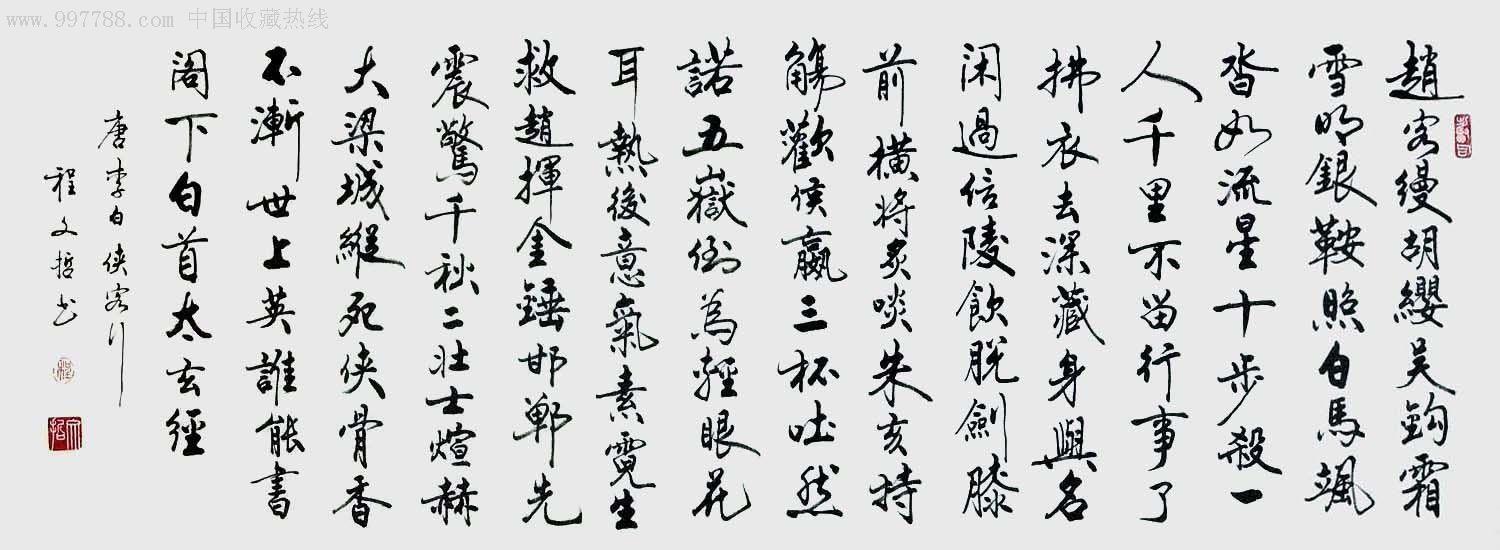 www.997788.com 中国收藏热线
趙客縵胡纓吴鈎霜
雪明銀鞍照白馬颯
沓如流星十步殺一
人千里不留行事了
拂衣去深藏身與名
闲過信陵飲脫劍膝
前橫將炙啖朱亥持
觴歡侯嬴三杯吐然
諾五嶽倒為輕眼花
耳熱後意氣素霓生
救趙揮金錘邯鄲先
震驚千秋二壮士煊赫
大梁城縱死侠骨香
不漸世上英誰能書
阁下白首太玄經
唐李白侠客行
程文哲书